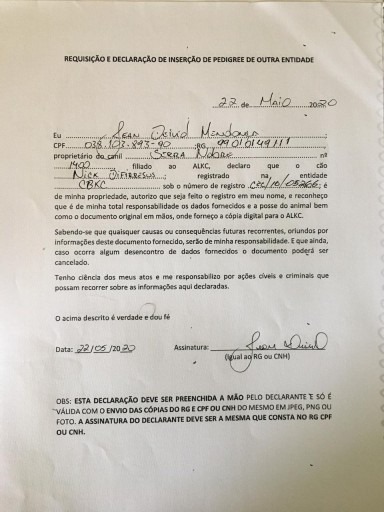 REQUISIÇÃO E DECLARAÇÃO DE INSERÇÃO DE PEDIGREE DE OUTRA ENTIDADE
22 de MAIO 2020
Eu Jean Mendonça ;
CPF 038.103.893-90 ;RG 99010149111 ;
proprietário do canil SERRA NOBRE nº
1400 filiado ao ALKC, declaro que o cão
NICK ; registrado na entidade
CBKC sob o número de registro ; é
de minha propriedade, autorizo que seja feito o registro em meu nome, e reconheço
que é de minha total responsabilidade os dados fornecidos e a posse do animal bem
como o documento original em mãos, onde forneço a cópia digital para o ALKC.
Sabendo-se que quaisquer causas ou consequências futuras recorrentes, oriundos por
informações deste documento fornecido, serão de minha responsabilidade. E que ainda,
caso ocorra algum desencontro de dados fornecidos o documento poderá ser
cancelado.
Tenho ciência dos meus atos e me responsabilizo por ações cíveis e criminais que
possam recorrer sobre as informações aqui declaradas.
O acima descrito é verdade e dou fé
Data: 22/05/2020 Assinatura: Jean
(igual ao RG ou CNH)
OBS: ESTA DECLARAÇÃO DEVE SER PREENCHIDA A MÃO PELO DECLARANTE E SÓ É
VÁLIDA COM O ENVIO DAS CÓPIAS DO RG E CPF OU CNH DO MESMO EM JPEG, PNG OU
FOTO. A ASSINATURA DO DECLARANTE DEVE SER A MESMA QUE CONSTA NO RG CPF
OU CNH.